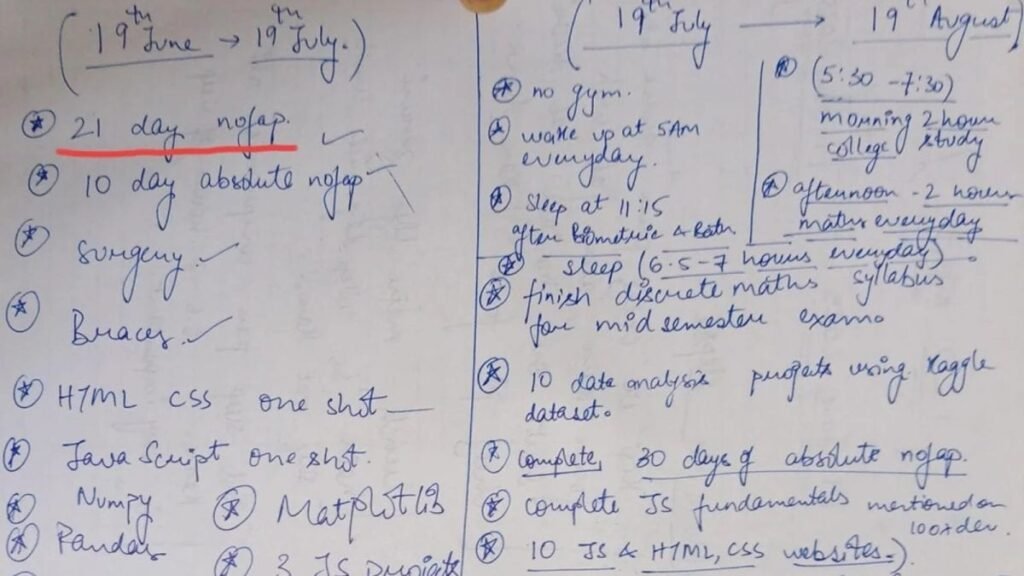 (19th June → 19th July.)
21 day nofap.
10 day absolute nofap
Surgery.
Braces.
HTML CSS one shot
JavaScript one shot.
Numpy
Matplotlib
Pandas
3 JS projects
(19th July → 19th August)
no gym.
wake up at 5AM
everyday.
Sleep at 11:15
after Biometric & Bath
sleep (6.5-7 hours everyday).
(5:30 - 7:30)
morning 2 hours
college study
afternoon - 2 hours
maths everyday
finish discrete maths syllabus
for mid semester exam.
10 data analysis projects using Kaggle
dataset.
complete 30 days of absolute nofap.
complete JS fundamentals mentioned on
100xdev.
10 JS & HTML, CSS websites.)